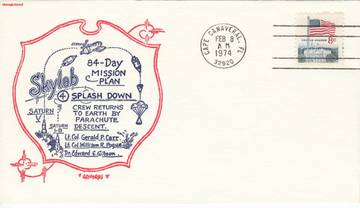 Skylab
84-Day
MISSION
PLAN
4 SPLASH DOWN
CREW RETURNS
TO EARTH BY
PARACHUTE
DESCENT.
SATURN
V
SATURN
1-B
Lt. Col Gerald P. Carr
Lt. Col William R. Pogue
Dr. Edward G. Gibson
CAPE CANAVERAL, FL
FEB 8
AM
1974
32920
8c